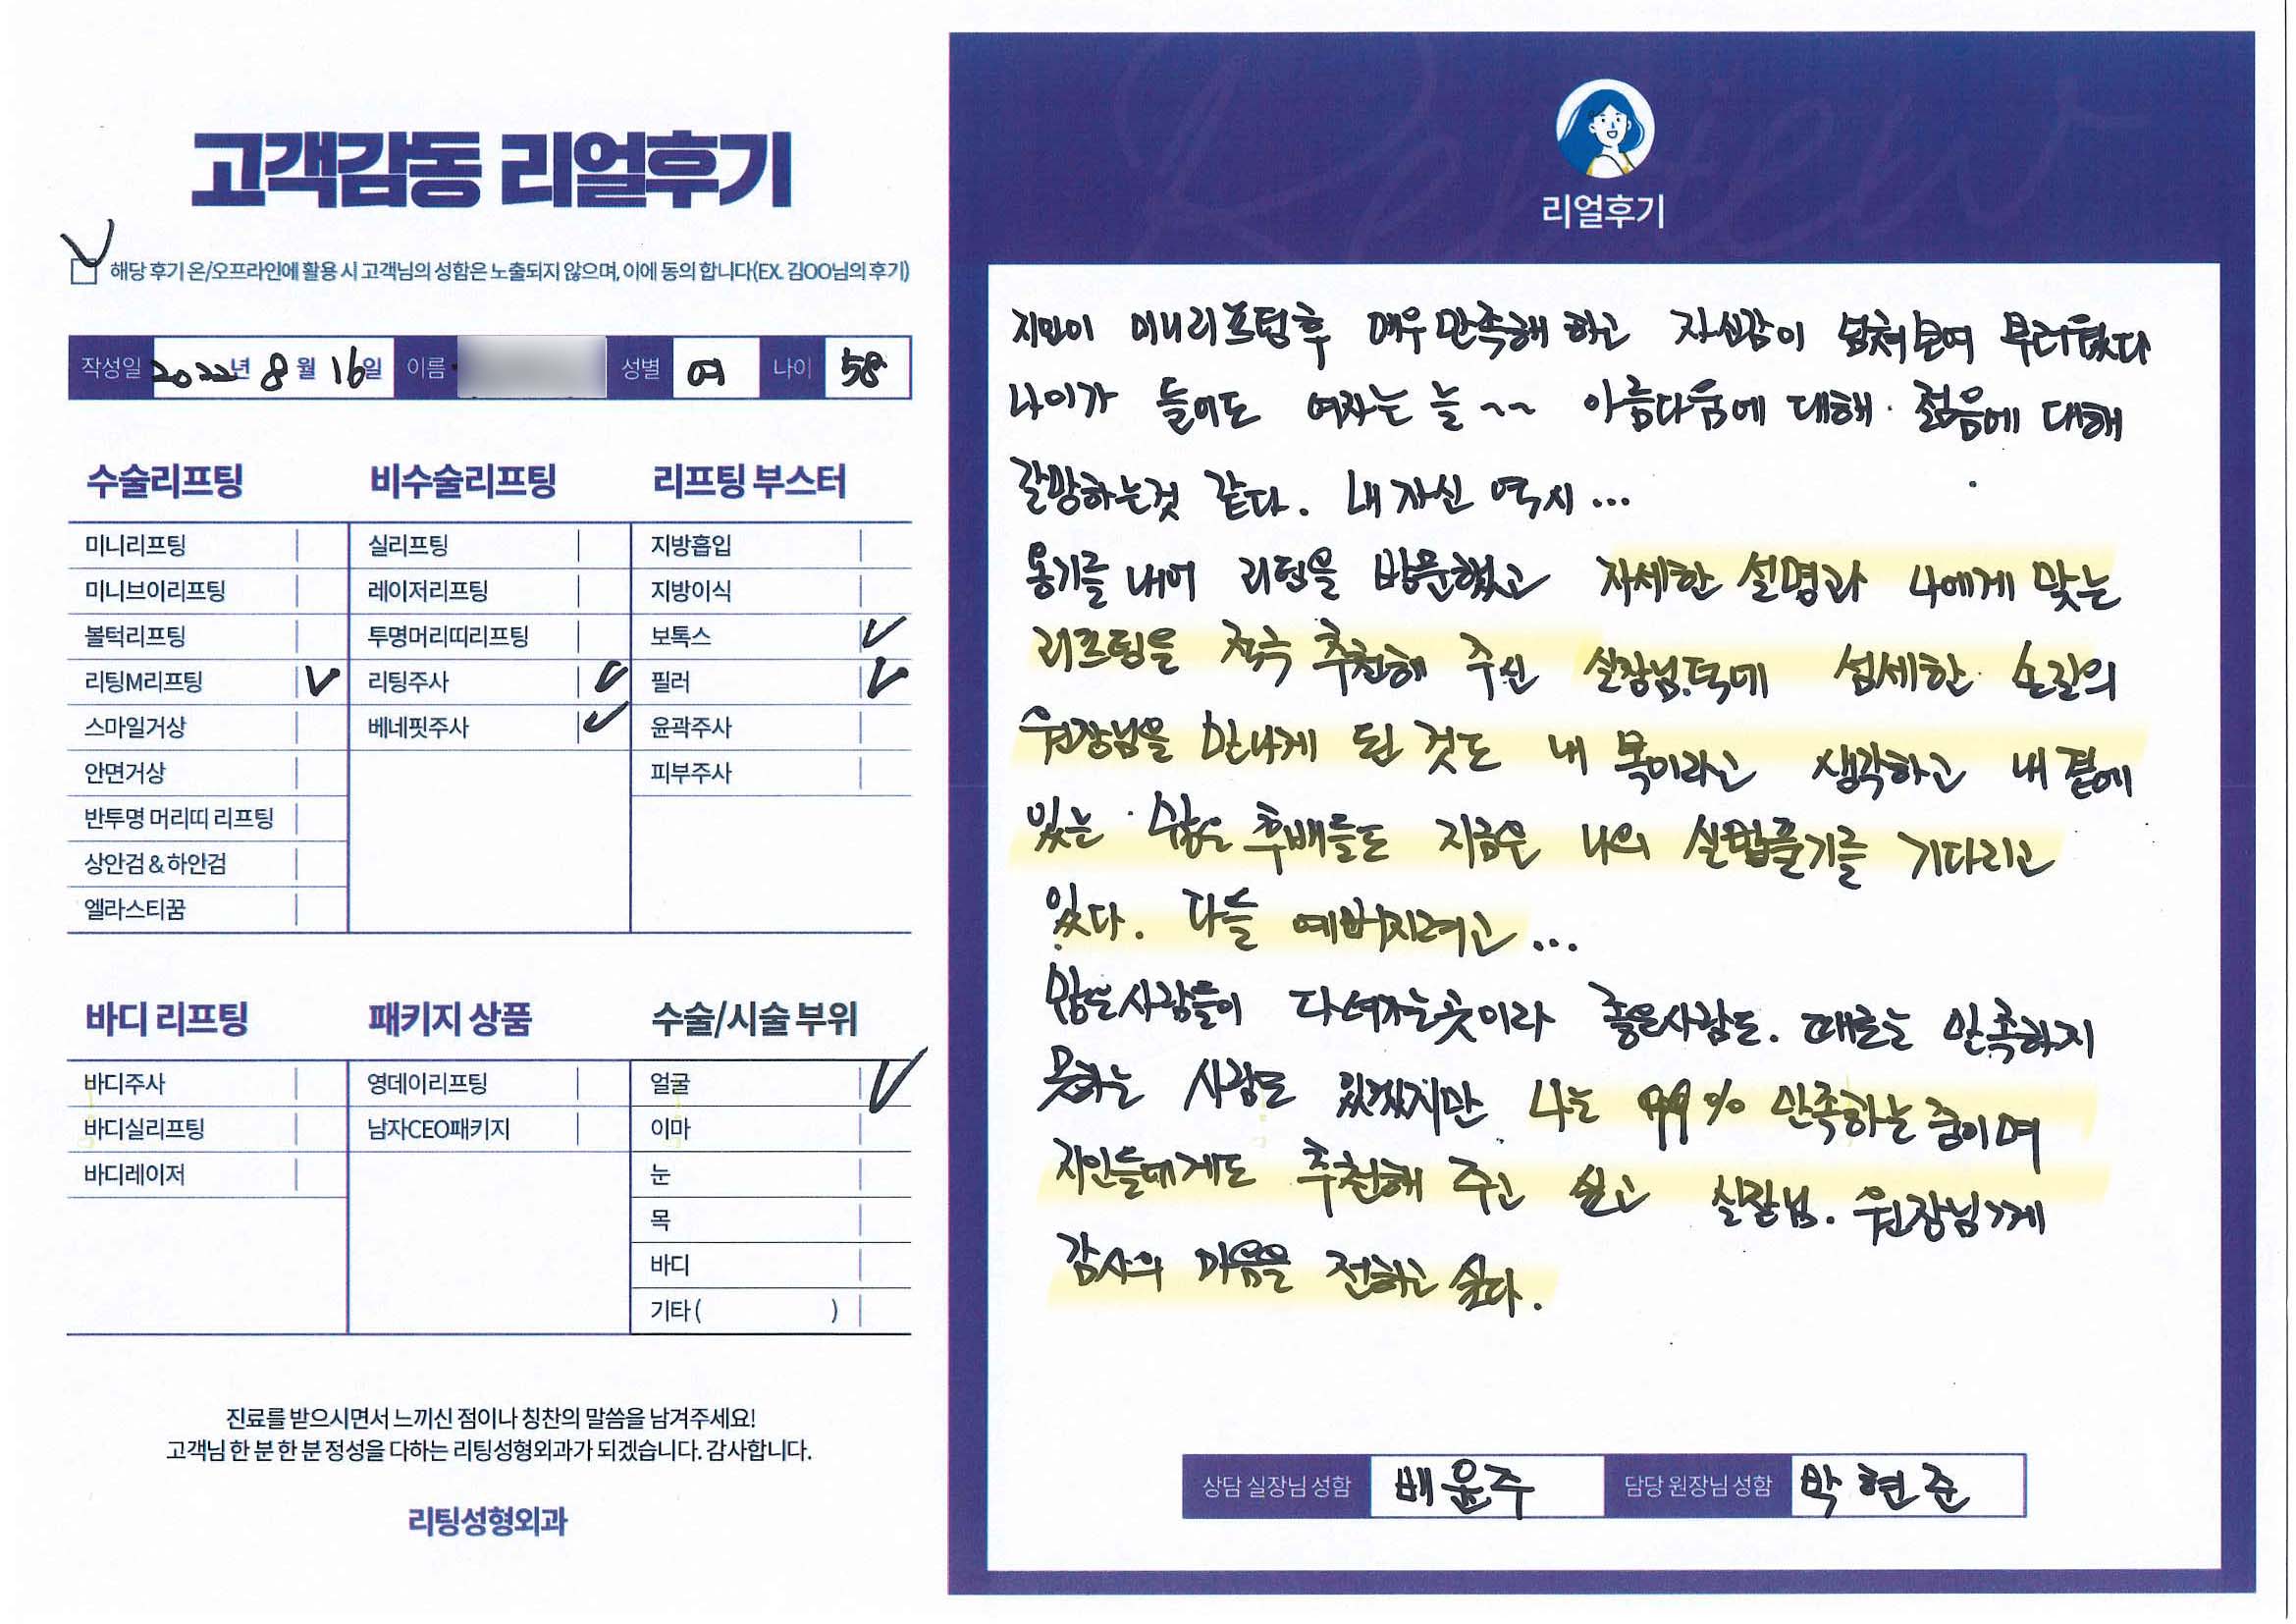 고객감동 리얼후기
해당 후기 온/오프라인에 활용 시 고객님의 성함은 노출되지 않으며, 이에 동의 합니다(EX. 김OO님의 후기)
작성일 2022년 8월 16일 이름 성별 여 나이 58
수술리프팅
미니리프팅
미니브이리프팅
볼턱리프팅
리팅M리프팅
스마일거상
안면거상
반투명 머리띠 리프팅
상안검 & 하안검
엘라스티꿈
비수술리프팅
실리프팅
레이저리프팅
투명머리띠리프팅
리팅주사
베네핏주사
리프팅 부스터
지방흡입
지방이식
보톡스
필러
윤곽주사
피부주사
바디 리프팅
바디주사
바디실리프팅
바디레이저
패키지 상품
영데이리프팅
남자CEO패키지
수술/시술 부위
얼굴
이마
눈
목
바디
기타 ( )
진료를 받으시면서 느끼신 점이나 칭찬의 말씀을 남겨주세요!
고객님 한 분 한 분 정성을 다하는 리팅성형외과가 되겠습니다. 감사합니다.
리팅성형외과
Review
리얼후기
지인이 미니리프팅후 매우 만족해 하고 자신감이 넘쳐보여 부러웠다
나이가 들어도 여자는 늘 ~~ 아름다움에 대해. 젊음에 대해
갈망하는것 같다. 내 자신 역시...
용기를 내어 리팅을 방문했고 자세한 설명과 나에게 맞는
리프팅을 적극 추천해 주신 실장님.덕에 섬세한 손길의
원장님을 만나게 된 것도 내 복이라고 생각하고 내 곁에
있는 많은 후배들도 지금은 나의 실밥풀기를 기다리고
있다. 다들 예뻐지려고...
많은사람들이 다녀가는곳이라 좋은사람도. 때로는 만족하지
못하는 사람도 있겠지만 나는 99% 만족하는 중이며
지인들에게도 추천해 주고 싶고 실장님. 원장님께
감사의 마음을 전하고 싶다.
상담 실장님 성함 배윤주 담당 원장님 성함 박현준